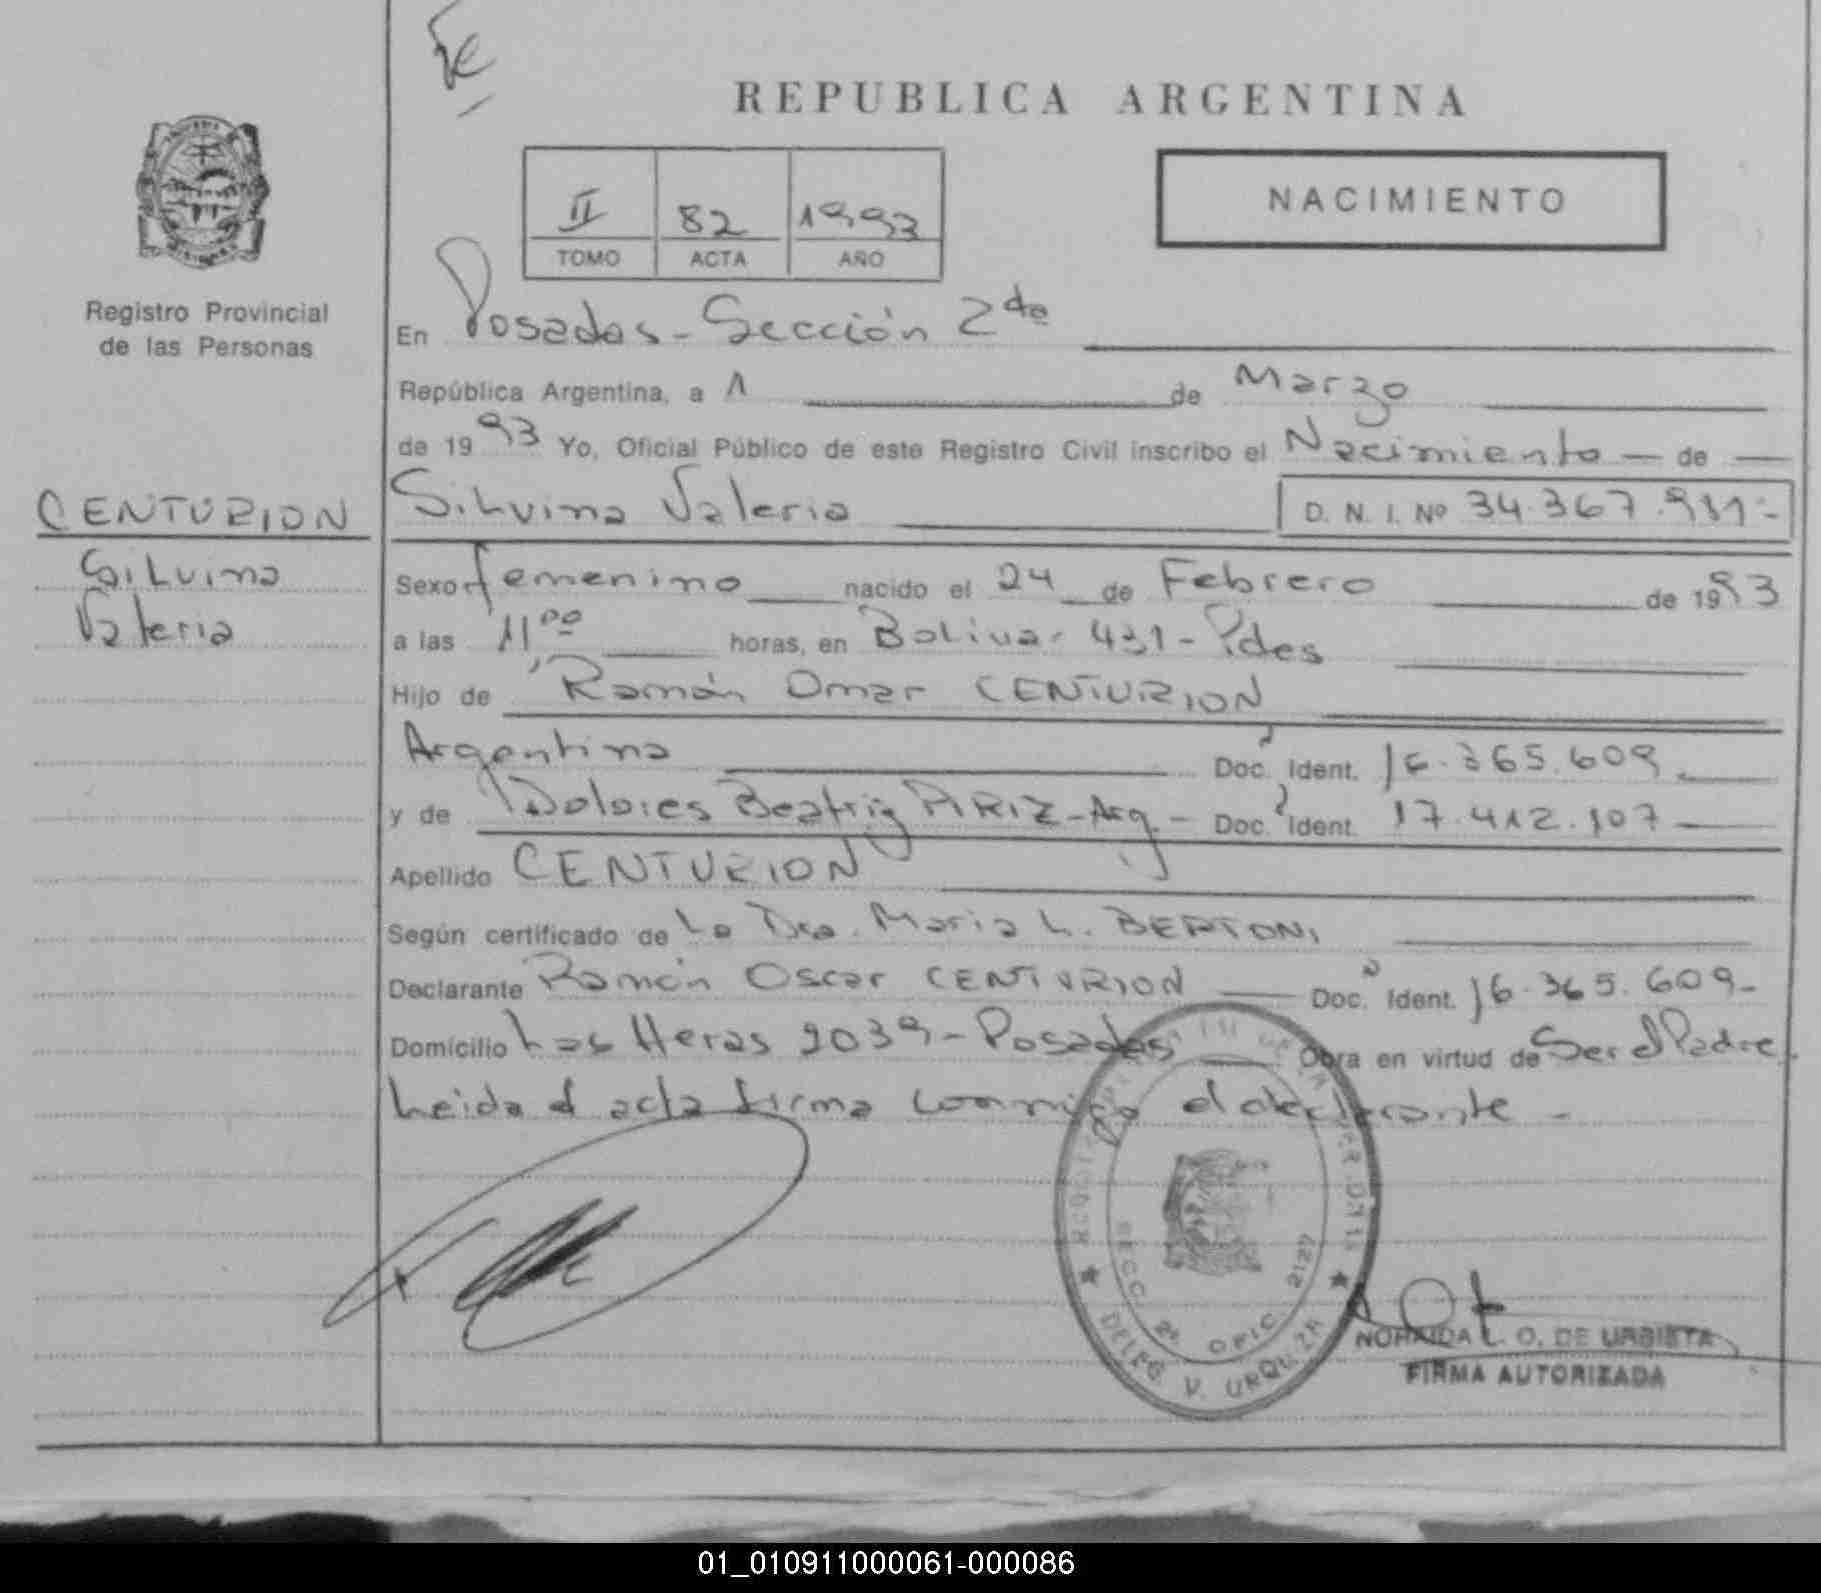 REPUBLICA ARGENTINA
NACIMIENTO
II 82 1993
TOMO ACTA AÑO
Registro Provincial
de las Personas
En Posadas - Sección 2da
República Argentina, a 1 de Marzo
de 1993 Yo, Oficial Público de este Registro Civil inscribo el Nacimiento - de -
CENTURION
Silvina Valeria D. N. I. Nº 34.367.931-
Silvina
Valeria
Sexo femenino nacido el 24 de Febrero de 1993
a las 11 00 horas, en Bolivar 431 - Pdas
Hijo de Ramón Omar CENTURION
Argentina Doc. Ident. 16.365.609
y de Dolores Beatriz PIRIZ - Arg. - Doc. Ident. 17.412.107
Apellido CENTURION
Según certificado de La Dra. Maria L. BERTONI
Declarante Ramón Oscar CENTURION Doc. Ident. 16.365.609-
Domicilio Las Heras 2039 - Posadas Obra en virtud de Ser el Padre.
Leida el acta firma conmigo el declarante -
SECC. 2ª OFIC. 2127
DELEG. V. URQUIZA
L. O. DE URBIETA
FIRMA AUTORIZADA
01_010911000061-000086